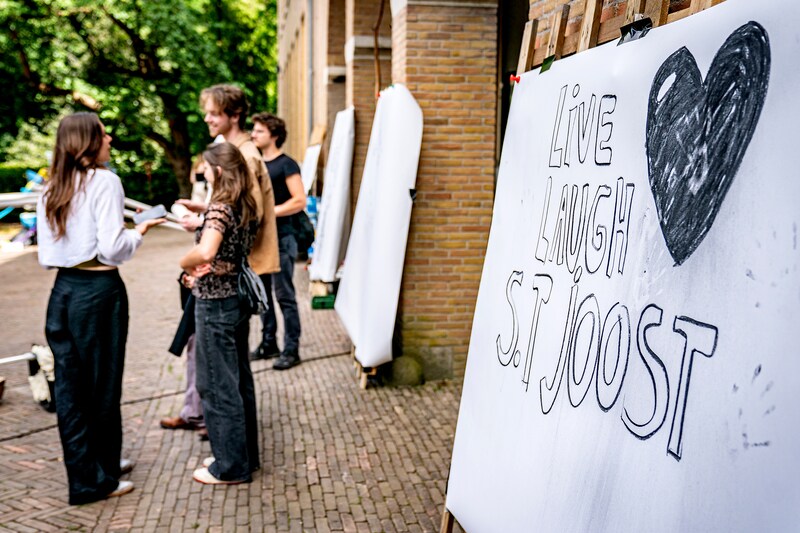 LIVE
LAUGH
S.T JOOST